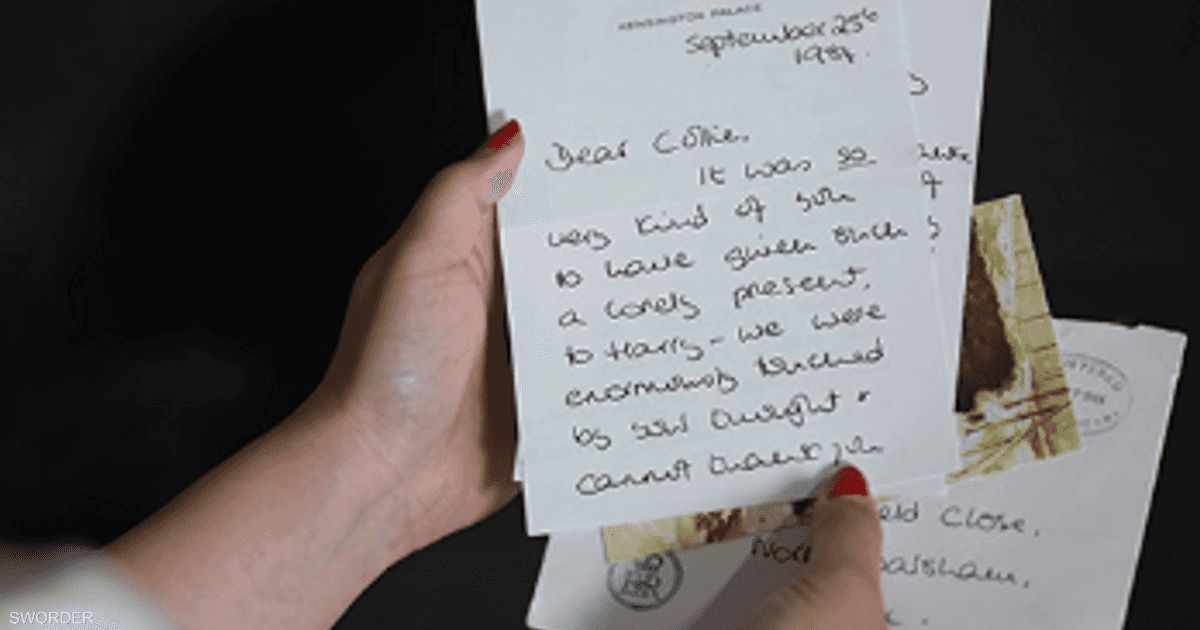 KENSINGTON PALACE
September 25th
1984.
Dear Collie.
It was so
very kind of you
to have given such
a lovely present,
to Harry - we were
enormously touched
by your thought &
cannot thank you
eld Close,
Norf
SWORDER